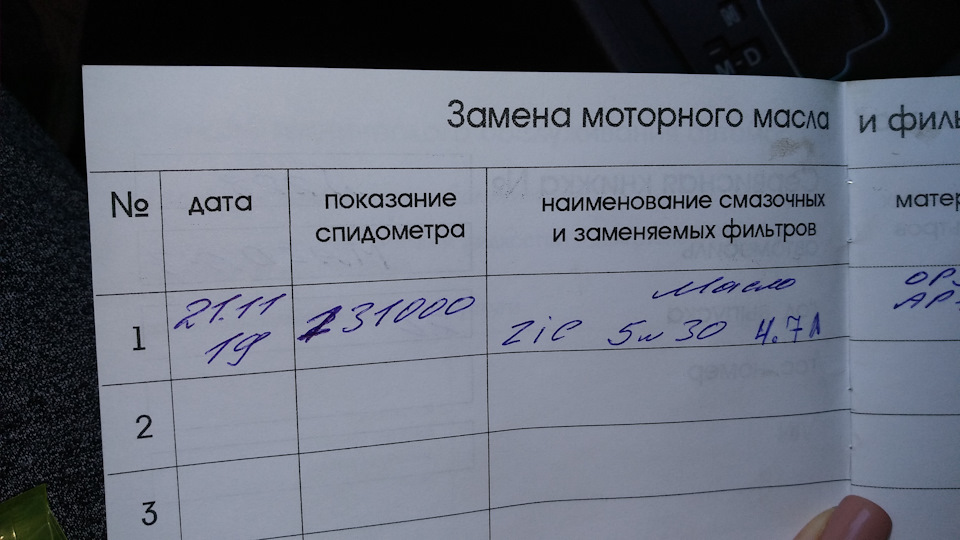 Замена моторного масла и филь
№ дата показание спидометра наименование смазочных и заменяемых фильтров матер
1 21.11 19 131000 Масло ZiC 5w30 4.7л
2
3
M-D